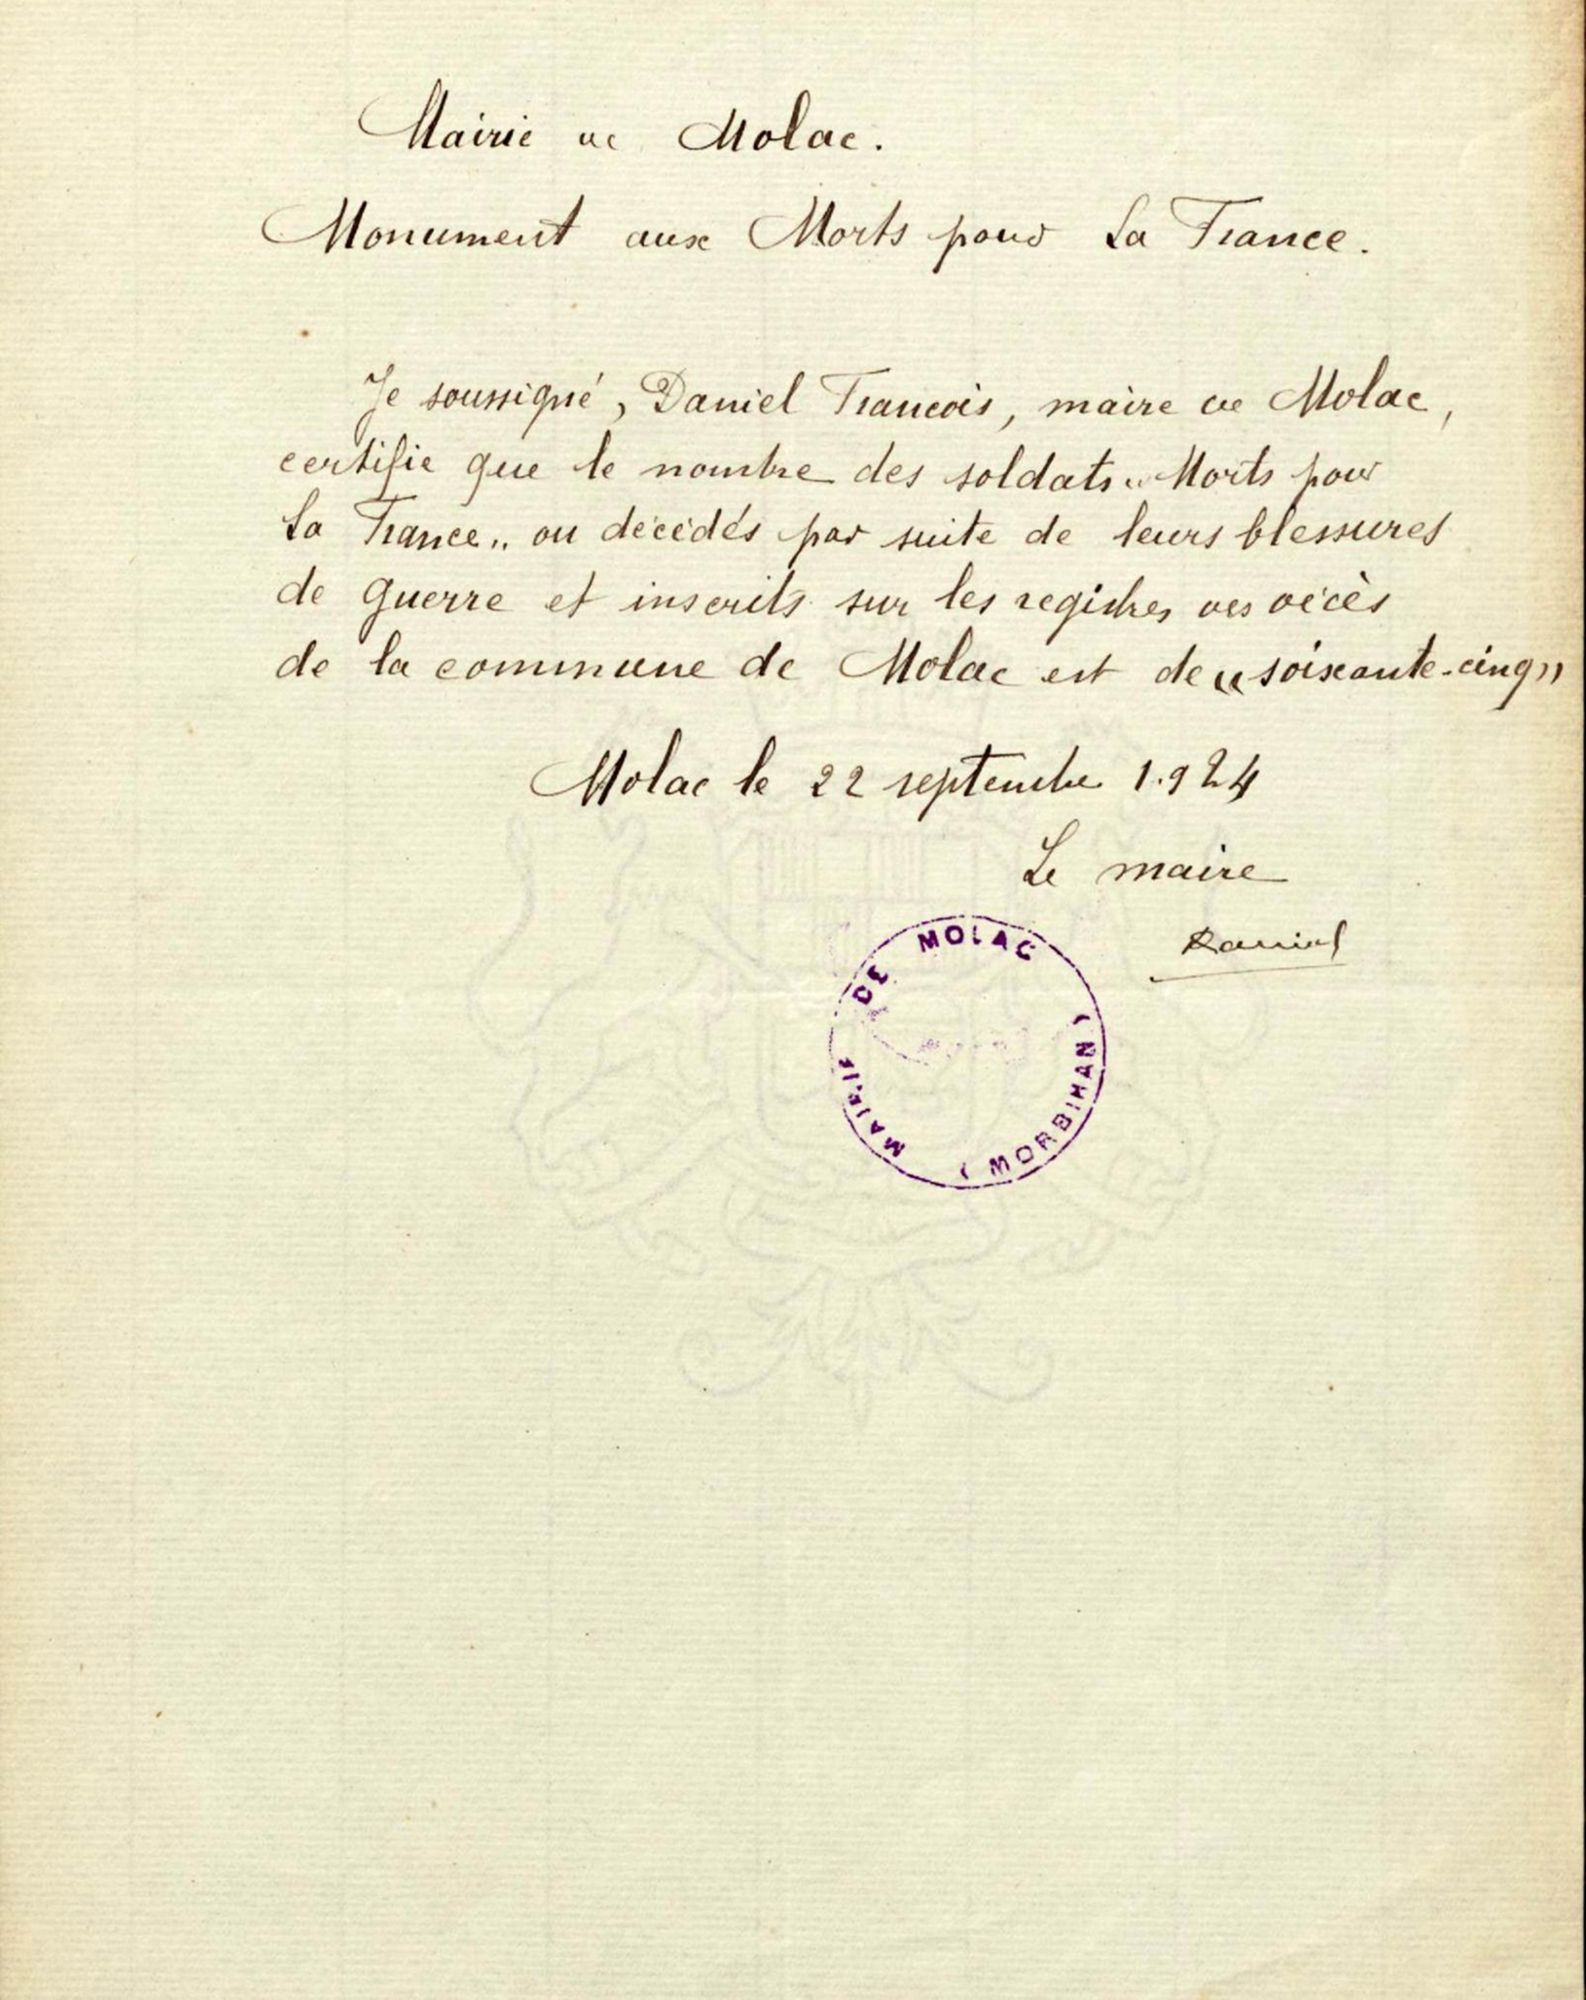 Mairie de Molac.
Monument aux Morts pour La France.
Je soussigné, Daniel Francois, maire de Molac,
certifie que le nombre des soldats "Morts pour
La France" ou décédés par suite de leurs blessures
de guerre et inscrits sur les registres des décès
de la commune de Molac est de "soixante-cinq"
Molac le 22 septembre 1.924
Le maire
Daniel
MAIRIE DE MOLAC
(MORBIHAN)